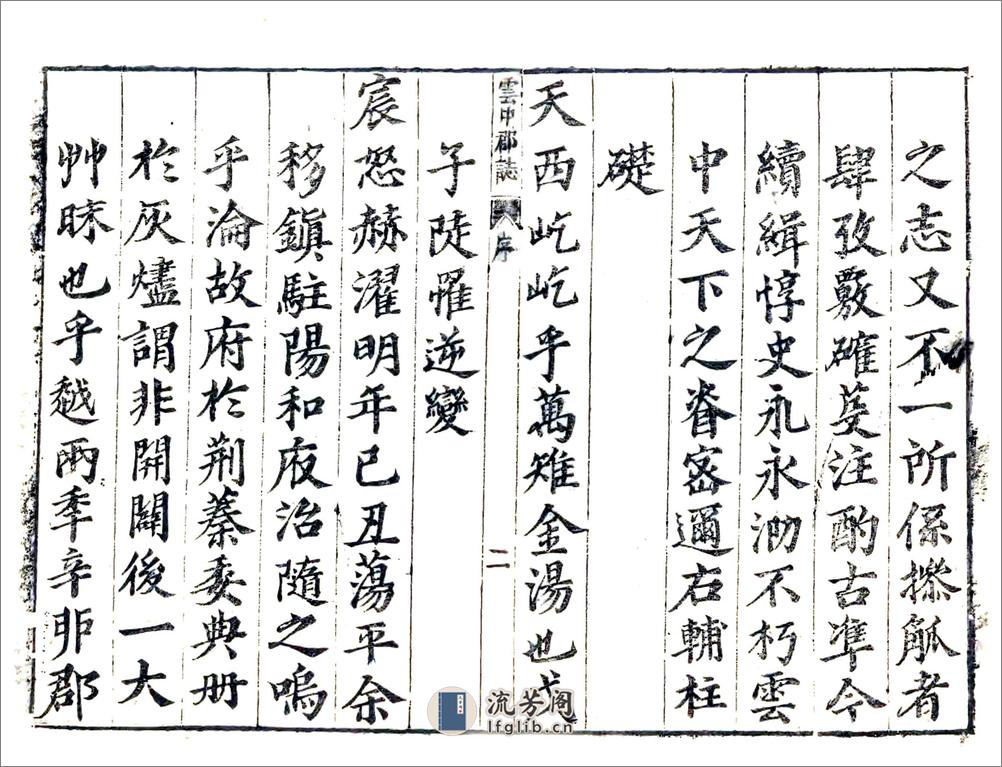 之志又不一所係攃觚者
肆攷覈確芟注酌古準今
續緝惇史永永泐不朽雲
中天下之脊宻邇右輔柱
礎
天西屹屹乎萬雉金湯也戊
雲中郡誌 序 二
子陡罹逆變
宸怒赫濯明年己丑蕩平余
移鎮駐陽和府治隨之嗚
乎淪故府於荆蓁委典册
於灰燼謂非開闢後一大
艸昧也乎越兩季辛卯郡
流芳阁
lfglib.cn